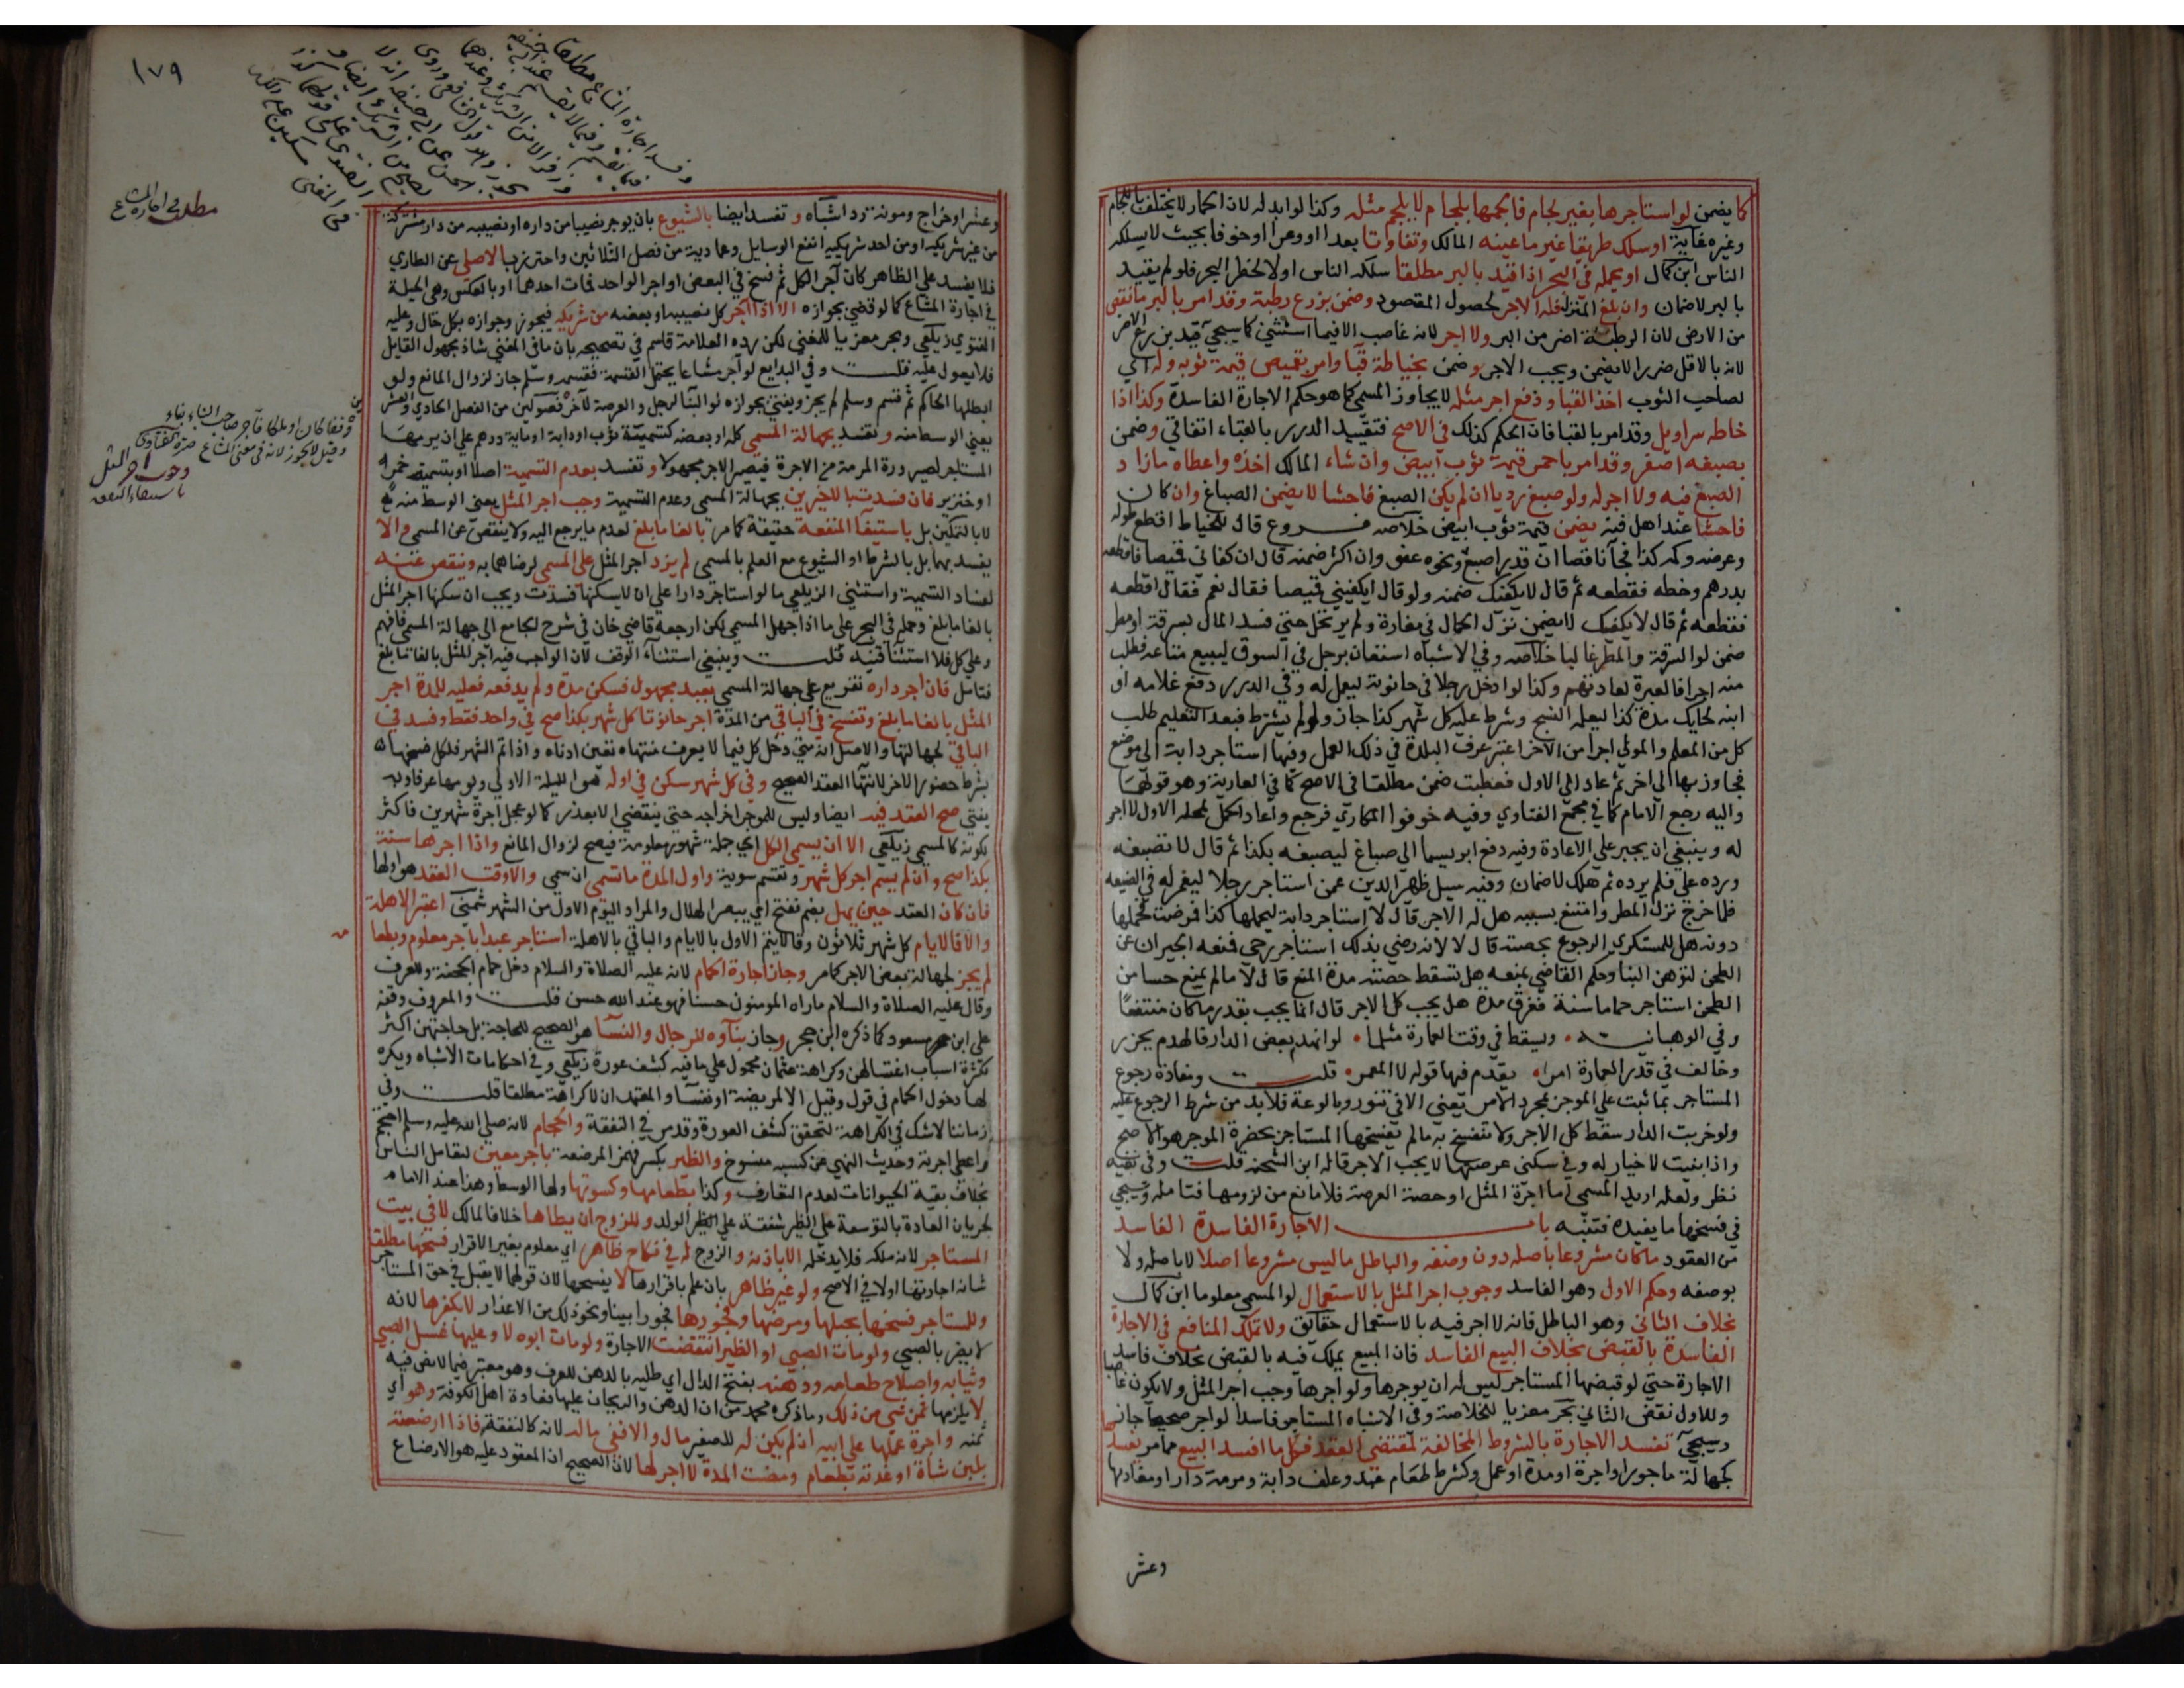 كما يضمن لو استاجرها بغير لجام فالجمها بلجام لا يلجم مثله وكذا لو ابدله لان الحمار لا يختلف باللجام
وغيره غاية او سلك طريقا غير ما عينه المالك وتفاوتا بعدا او وعرا او خوفا بحيث لا يسلكه
الناس ابن كمال او بحمله في البحر اذا قيد بالبر مطلقا سلكه الناس اولا لخطر البحر فلو لم يقيد
بالبر لا ضمان وان بلغ المنزل فله الاجر لحصول المقصود وضمن بزرع رطبة وقد امر بالبر ما نقص
من الارض لان الرطبة اضر من البر ولا اجر لانه غاصب الا فيما استثني كما سيجي قيد بزرع الاضر
لانه بالاقل ضررا لا يضمن ويجب الاجر وضمن بخياطة قبا وامر بقميص قيمة ثوبه وله اي
لصاحب الثوب اخذ القبا ودفع اجر مثله لا يجاوز المسمى كما هو حكم الاجارة الفاسدة وكذا اذا
خاطه سراويل وقد امر بالقبا فان الحكم كذلك في الاصح فتقييد الدرر بالقباء اتفاقي وضمن
بصبغه اصفر وقد امر باحمر قيمة ثوب ابيض وان شاء المالك اخذه واعطاه ما زاد
الصبغ فيه ولا اجر له ولو صبغ رديا ان لم يكن الصبغ فاحشا لا يضمن الصباغ وان كان
فاحشا عند اهل فنه يضمن قيمة ثوب ابيض خلاصه فروع قال للخياط اقطع طوله
وعرضه وكمه كذا فجآ ناقصا ان قدر اصبع ونحوه عفو وان اكثر ضمنه قال ان كفاني قميصا فاقطعه
بدرهم وخطه فقطعه ثم قال لا يكفيك ضمنه ولو قال ايكفيني قميصا فقال نعم فقال اقطعه
فقطعه ثم قال لا يكفيك لا يضمن نزل الحمال في مفازة ولم يرتحل حتى فسد المال بسرقة او مطر
ضمن لو السرقة والمطر غالبا خلاصه وفي الاشباه استعان برجل في السوق ليبيع متاعه فطلب
منه اجرا فالعبرة لعادتهم وكذا لو ادخل رجلا في حانوته ليعمل له وفي الدرر دفع غلامه او
ابنه لحايك مدة كذا ليعلمه النسج وشرط عليه كل شهر كذا جاز ولو لم يشترط فبعد التعليم طلب
كل من المعلم والمولى اجرا من الاخر اعتبر عرف البلدة في ذلك العمل وفيها استاجر دابة الى موضع
فجاوز بها الى اخر ثم عاد الى الاول فعطبت ضمن مطلقا في الاصح كما في العارية وهو قولهما
واليه رجع الامام كما في مجمع الفتاوي وفيه خوفوا المكاري فرجع واعاد الحمل لمحله الاول لا اجر
له وينبغي ان يجبر على الاعادة وفيه دفع ابريسما الى صباغ ليصبغه بكذا ثم قال لا تصبغه
ورده علي فلم يرده ثم هلك لا ضمان وفيه سيل ظهر الدين عمن استاجر رجلا ليغرم له في الضيعه
فلما خرج نزل المطر وامتنع بسببه هل له الاجر قال لا استاجر دابة ليحملها كذا فمرضت فحملها
دونه هل للمستكري الرجوع بحصته قال لا لانه رضي بذلك استاجر رحى فمنعه الجيران عن
الطحن لتوهن البنا وحكم القاضي بمنعه هل تسقط حصته مدة المنع قال لا ما لم يمنع حسا من
الطحن استاجر حماما سنة فغرق مدة هل يجب كل الاجر قال انما يجب بقدر ما كان منتفعا
وفي الوهبانيه ويسقط في وقت العمارة مثلما لو انهدم بعض الدار فالهدم يحزر
وخالف في قدر العمارة امرا يقدم فيها قوله لا المعمر قلت ومفاده رجوع
المستاجر بما ثبت على الموجر بمجرد الامر يعني الا في تنور وبالوعة فلا بد من شرط الرجوع عليه
ولو خربت الدار سقط كل الاجر ولا تنفسخ به ما لم يفسخها المستاجر بحضرة الموجر هو الاصح
واذا بنيت لا خيار له وفي سكنى عرصتها لا يجب الاجر قاله ابن الشحنه قلت وفي نفيه
نظر ولعله اريد المسمى اما اجرة المثل او حصة العرصة فلا مانع من لزومها فتامله وسيجي
في فسخها ما يفيده فتنبه باب الاجارة الفاسدة الفاسد
من العقود ما كان مشروعا باصله دون وصفه والباطل ما ليس مشروعا اصلا لا باصله ولا
بوصفه وحكم الاول وهو الفاسد وجوب اجر المثل بالاستعمال لو المسمى معلوما ابن كمال
بخلاف الثاني وهو الباطل فانه لا اجر فيه بالاستعمال حقائق ولا تملك المنافع في الاجارة
الفاسدة بالقبض بخلاف البيع الفاسد فان المبيع يملك فيه بالقبض بخلاف فاسد
الاجارة حتى لو قبضها المستاجر ليس له ان يوجرها ولو اجرها وجب اجر المثل ولا يكون غاصبا
وللاول نقض الثاني بحر معزيا للخلاصة وفي الاشباه المستاجر فاسدا لو اجر صحيحا جاز
وسيجي تفسد الاجارة بالشروط المخالفة لمقتضى العقد فكل ما افسد البيع مما مر يفسدها
كجهالة ماجور او اجرة او مدة او عمل وكشرط طعام عبد وعلف دابة ومرمة دار او مغارمها
وعشر
١٧٩
وعشر او خراج ومونة رد اشباه وتفسد ايضا بالشيوع بان يوجر نصيبا من داره او نصيبه من دار مشتركة
من غير شريكه او من احد شريكيه انفع الوسايل وعمادية من فصل الثلاثين واحترز بالاصلي عن الطاري
فلا يفسد على الظاهر كان آجر الكل ثم فسخ في البعض او اجرا لواحد فمات احدهما او بالعكس وهي الحيلة
في اجارة المشاع كما لو قضي بجوازه الا اذا آجر كل نصيبه او بعضه من شريكه فيجوز وجوازه بكل حال وعليه
الفتوى زيلعي وبحر معزيا للمغني لكن رده العلامة قاسم في تصحيحه بان ما في المغني شاذ مجهول القايل
فلا يعول عليه قلت وفي البدايع لو آجر مشاعا يحتمل القسمة فقسمه وسلم جاز لزوال المانع ولو
ابطلها الحاكم ثم قسم وسلم لم يجز ويفتى بجوازه لو البنا لرجل والعرصة لآخر فصولين من الفصل الحادي والعشرين
يعني الوسط منه وتفسد بجهالة المسمى كله او بعضه كتسمية ثوب او دابة او ماية درهم على ان يرمها
المستاجر لصيرورة المرمة من الاجرة فيصير الاجر مجهولا وتفسد بعدم التسمية اصلا او بتسمية خمر
او خنزير فان فسدت بالاخيرين بجهالة المسمى وعدم التسمية وجب اجر المثل يعني الوسط منه
لا بالتمكين بل باستيفآ المنفعة حقيقة كما مر بالغا ما بلغ لعدم ما يرجع اليه ولا ينقص عن المسمى والا
يفسد بهما بل بالشرط او الشيوع مع العلم بالمسمى لم يزد اجر المثل على المسمى لرضاهما به وينقص عنه
لفساد التسمية واستثنى الزيلعي ما لو استاجر دارا على ان لا يسكنها فسدت ويجب ان سكنها اجر المثل
بالغا ما بلغ وحمله في البحر على ما اذا جهل المسمى لكن ارجعه قاضي خان في شرح الجامع الى جهالة المسمى فافهم
وعلى كل فلا استثنآ فتنبه قلت وينبغي استثناء الوقف لان الواجب فيه اجر المثل بالغا ما بلغ
فتامل فان اجر داره تفريع على جهالة المسمى بعبد مجهول فسكن مدة ولم يدفعه فعليه للمدة اجر
المثل بالغا ما بلغ وتفسخ في الباقي من المدة اجر حانوتا كل شهر بكذا صح في واحد فقط وفسد في
الباقي لجهالتها والاصل انه متى دخل كل فيما لا يعرف منتهاه تعين ادناه واذا تم الشهر فلكل فسخها
بشرط حضور الاخر لانتهآ العقد الصحيح وفي كل شهر سكن في اوله هو الليلة الاولى ويومها عرفا وبه
يفتى صح العقد فيه ايضا وليس للموجر اخراجه حتى ينقضي الا بعذر كما لو عجل اجرة شهرين فاكثر
لكونه كالمسمى زيلعي الا ان يسمى الكل اي جملة شهور معلومة فيصح لزوال المانع واذا اجرها سنة
بكذا صح وان لم يسم اجر كل شهر وتقسم سوية واول المدة ما سمى ان سمى والا وقت العقد هو اولها
فان كان العقد حين يهل بضم ففتح اي يبصر الهلال والمراد اليوم الاول من الشهر شمني اعتبر الاهلة
والا فالايام كل شهر ثلاثون وقالا يتم الاول بالايام والباقي بالاهلة استاجر عبدا باجر معلوم وبطعامه
لم يجز لجهالة بعض الاجر كما مر وجاز اجارة الحمام لانه عليه الصلاة والسلام دخل حمام الجحفة وللعرف
وقال عليه الصلاة والسلام ما راه المومنون حسنا فهو عند الله حسن قلت والمعروف وقفه
على ابن مسعود كما ذكره ابن حجر وجاز بناوه للرجال والنسآ هو الصحيح للحاجة بل حاجتهن اكثر
لكثرة اسباب اغتسالهن وكراهة عثمان محمول على ما فيه كشف عورة زيلعي وفي احكامات الاشباه ويكره
لها دخول الحمام في قول وقيل الا لمريضة او نفسآ والمعتمد ان لا كراهة مطلقا قلت وفي
زماننا لا شك في الكراهة لتحقق كشف العورة وقد مر في النفقة والحجام لانه صلى الله عليه وسلم احتجم
واعطى اجرته وحديث النهي عن كسبه منسوخ والظير بكسر فهمز المرضعة باجر معين لتعامل الناس
بخلاف بقية الحيوانات لعدم التعارف وكذا بطعامها وكسوتها ولها الوسط وهذا عند الامام
لجريان العادة بالتوسعة على الظير شفقة على الولد وللزوج ان يطاها خلافا لمالك لا في بيت
المستاجر لانه ملكه فلا يدخله الا باذنه والزوج له في نكاح ظاهر اي معلوم بغير الاقرار فسخها مطلقا
شانه اجارتها اولا في الاصح ولو غير ظاهر بان علم باقرارها لا يفسخها لان قولها لا يقبل في حق المستاجر
وللمستاجر فسخها بحبلها ومرضها وفجورها فجورا بينا ونحو ذلك من الاعذار لا بكفرها لانه
لا يضر بالصبي ولو مات الصبي او الظير انتقضت الاجارة ولو مات ابوه لا وعليها غسل الصبي
وثيابه واصلاح طعامه ودهنه بفتح الدال اي طليه بالدهن للعرف وهو معتبر فيما لا نص فيه
لا يلزمها ثمن شي من ذلك وما ذكره محمد من ان الدهن والريحان عليها فعادة اهل الكوفة وهو اي
ثمنه واجرة عملها على ابيه ان لم يكن له للصغير مال والا ففي ماله لانه كالنفقة فاذا ارضعته
بلبن شاة او غذته بطعام ومضت المدة لا اجر لها لان الصحيح ان المعقود عليه هو الارضاع
مطلب في اجارة المشاع
وقيل لا يجوز لانه في معنى المشاع
وجوب اجر المثل